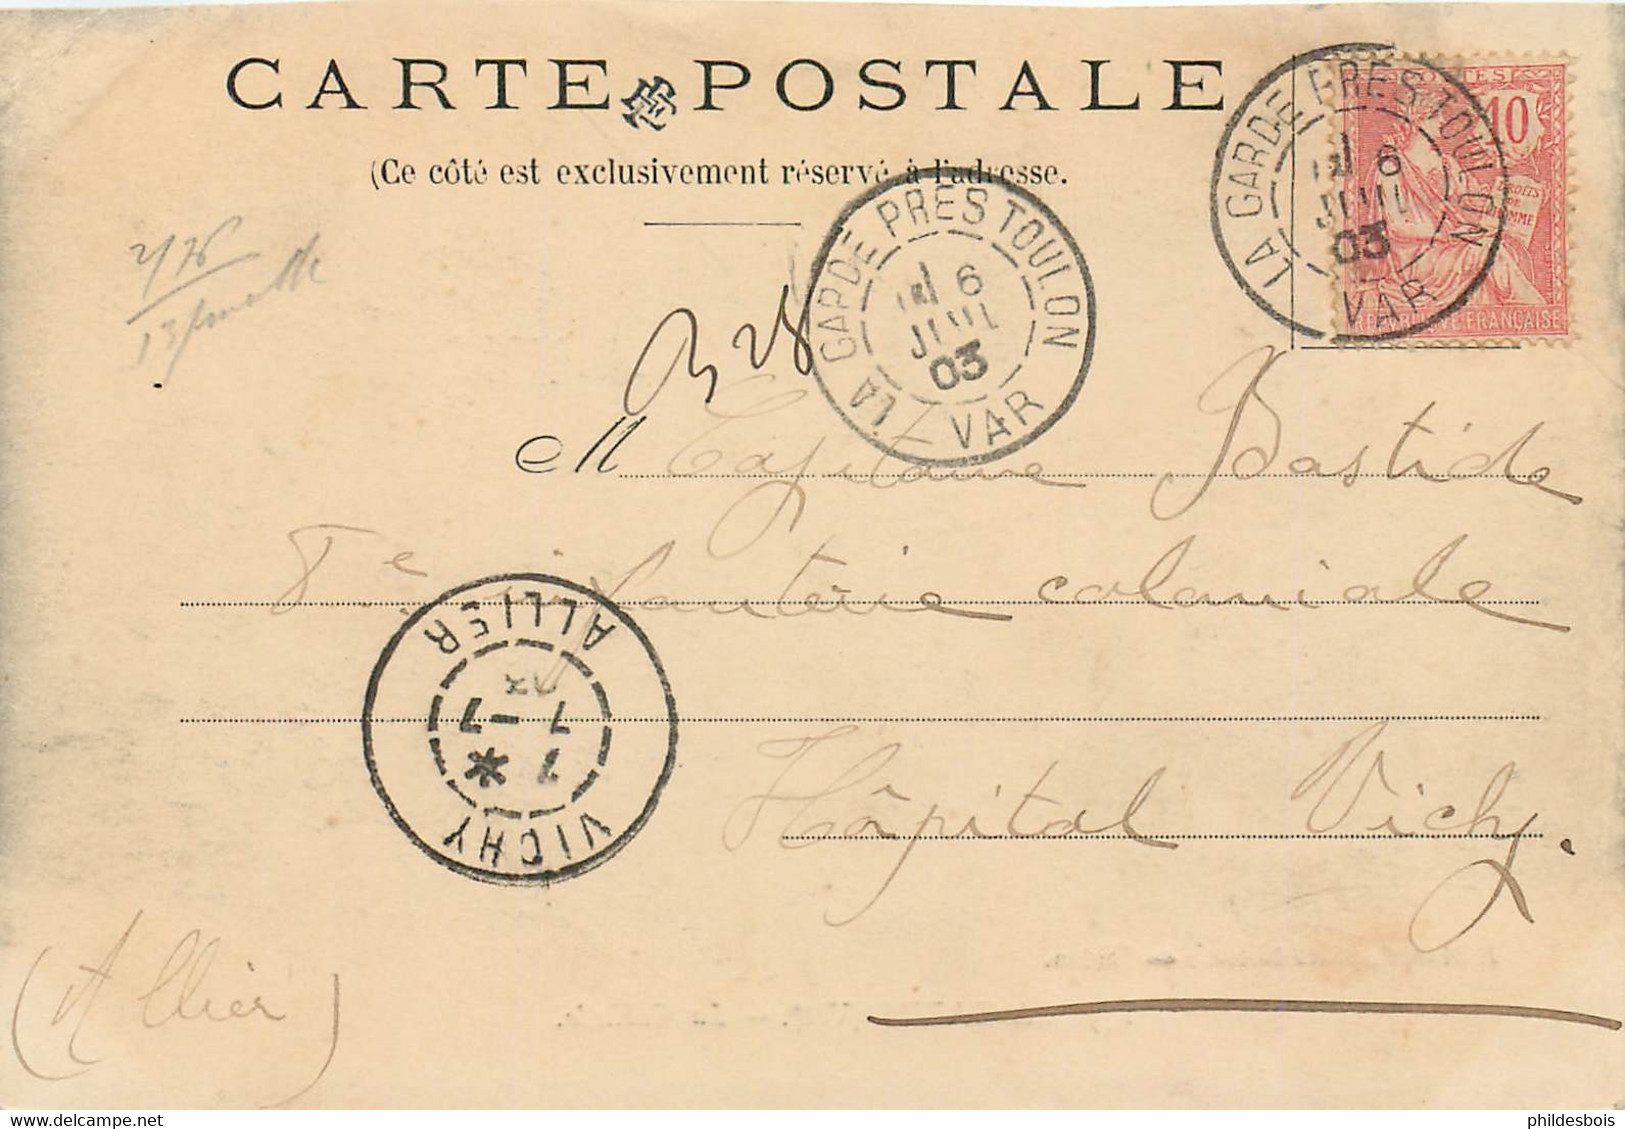 CARTE POSTALE
(Ce côté est exclusivement réservé à l'adresse.
POSTES
10
DROITS
DE
HOMME
REPUBLIQUE FRANÇAISE
LA GARDE PRES TOULON
6
JUIL
03
VAR
LA GARDE PRES TOULON
6
JUIL
03
VAR
M Capitaine Bastide
8e infanterie coloniale
Hôpital Vichy.
(Allier)
VICHY
7 *
7 -7
03
ALLIER
phildesbois